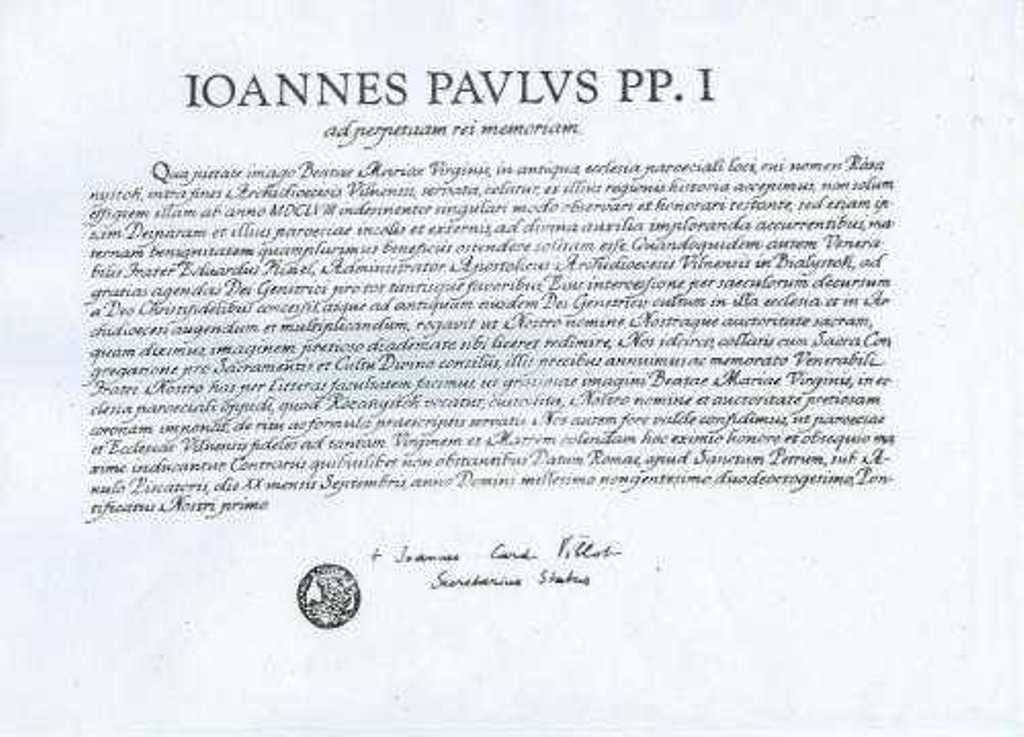 IOANNES PAVLVS PP. I
ad perpetuam rei memoriam
Qua pietate imago Beatae Mariae Virginis, in antiqua ecclesia paroeciali loci, cui nomen Róża
nystok, intra fines Archidioecesis Vilnensis, servata, colatur, ex illius regionis historia accepimus, non solum
effigiem illam ab anno MDCLVIII indesinenter singulari modo observari et honorari testante, sed etiam ip
sam Deiparam et illius paroeciae incolis et externis, ad divina auxilia imploranda accurrentibus, ma
ternam benignitatem quamplurimis beneficiis ostendere solitam esse. Quandoquidem autem Venera
bilis Frater Eduardus Kisiel, Administrator Apostolicus Archidioecesis Vilnensis in Białystok, ad
gratias agendas Dei Genitrici pro tot tantisque favoribus, Eius intercessione per saeculorum decursum
a Deo Christifidelibus concessis, atque ad antiquum eiusdem Dei Genitricis cultum in illa ecclesia et in Ar
chidioecesi augendum et multiplicandum, rogavit ut Nostro nomine Nostraque auctoritate sacram,
quam diximus, imaginem pretioso diademate sibi liceret redimire, Nos idcirco, collatis cum Sacra Con
gregatione pro Sacramentis et Cultu Divino consiliis, illis precibus annuimus ac memorato Venerabili
Fratri Nostro has per Litteras facultatem facimus, ut gratiosae imagini Beatae Mariae Virginis, in ec
clesia paroeciali oppidi, quod Rozanystok vocatur, custodita, Nostro nomine et auctoritate pretiosam
coronam imponat, de ritu ac formulo praescriptis servatis. Nos autem fore valde confidimus, ut paroeciae
et Ecclesiae Vilnensis fideles ad tantam Virginem et Matrem colendam hoc eximio honore et obsequio ma
xime inducantur. Contrariis quibuslibet non obstantibus. Datum Romae, apud Sanctum Petrum, sub A-
nulo Piscatoris, die XX mensis Septembris anno Domini millesimo nongentesimo duodeoctogesimo, Pon-
tificatus Nostri primo.
+ Ioannes Card Villot
Secretarius Status